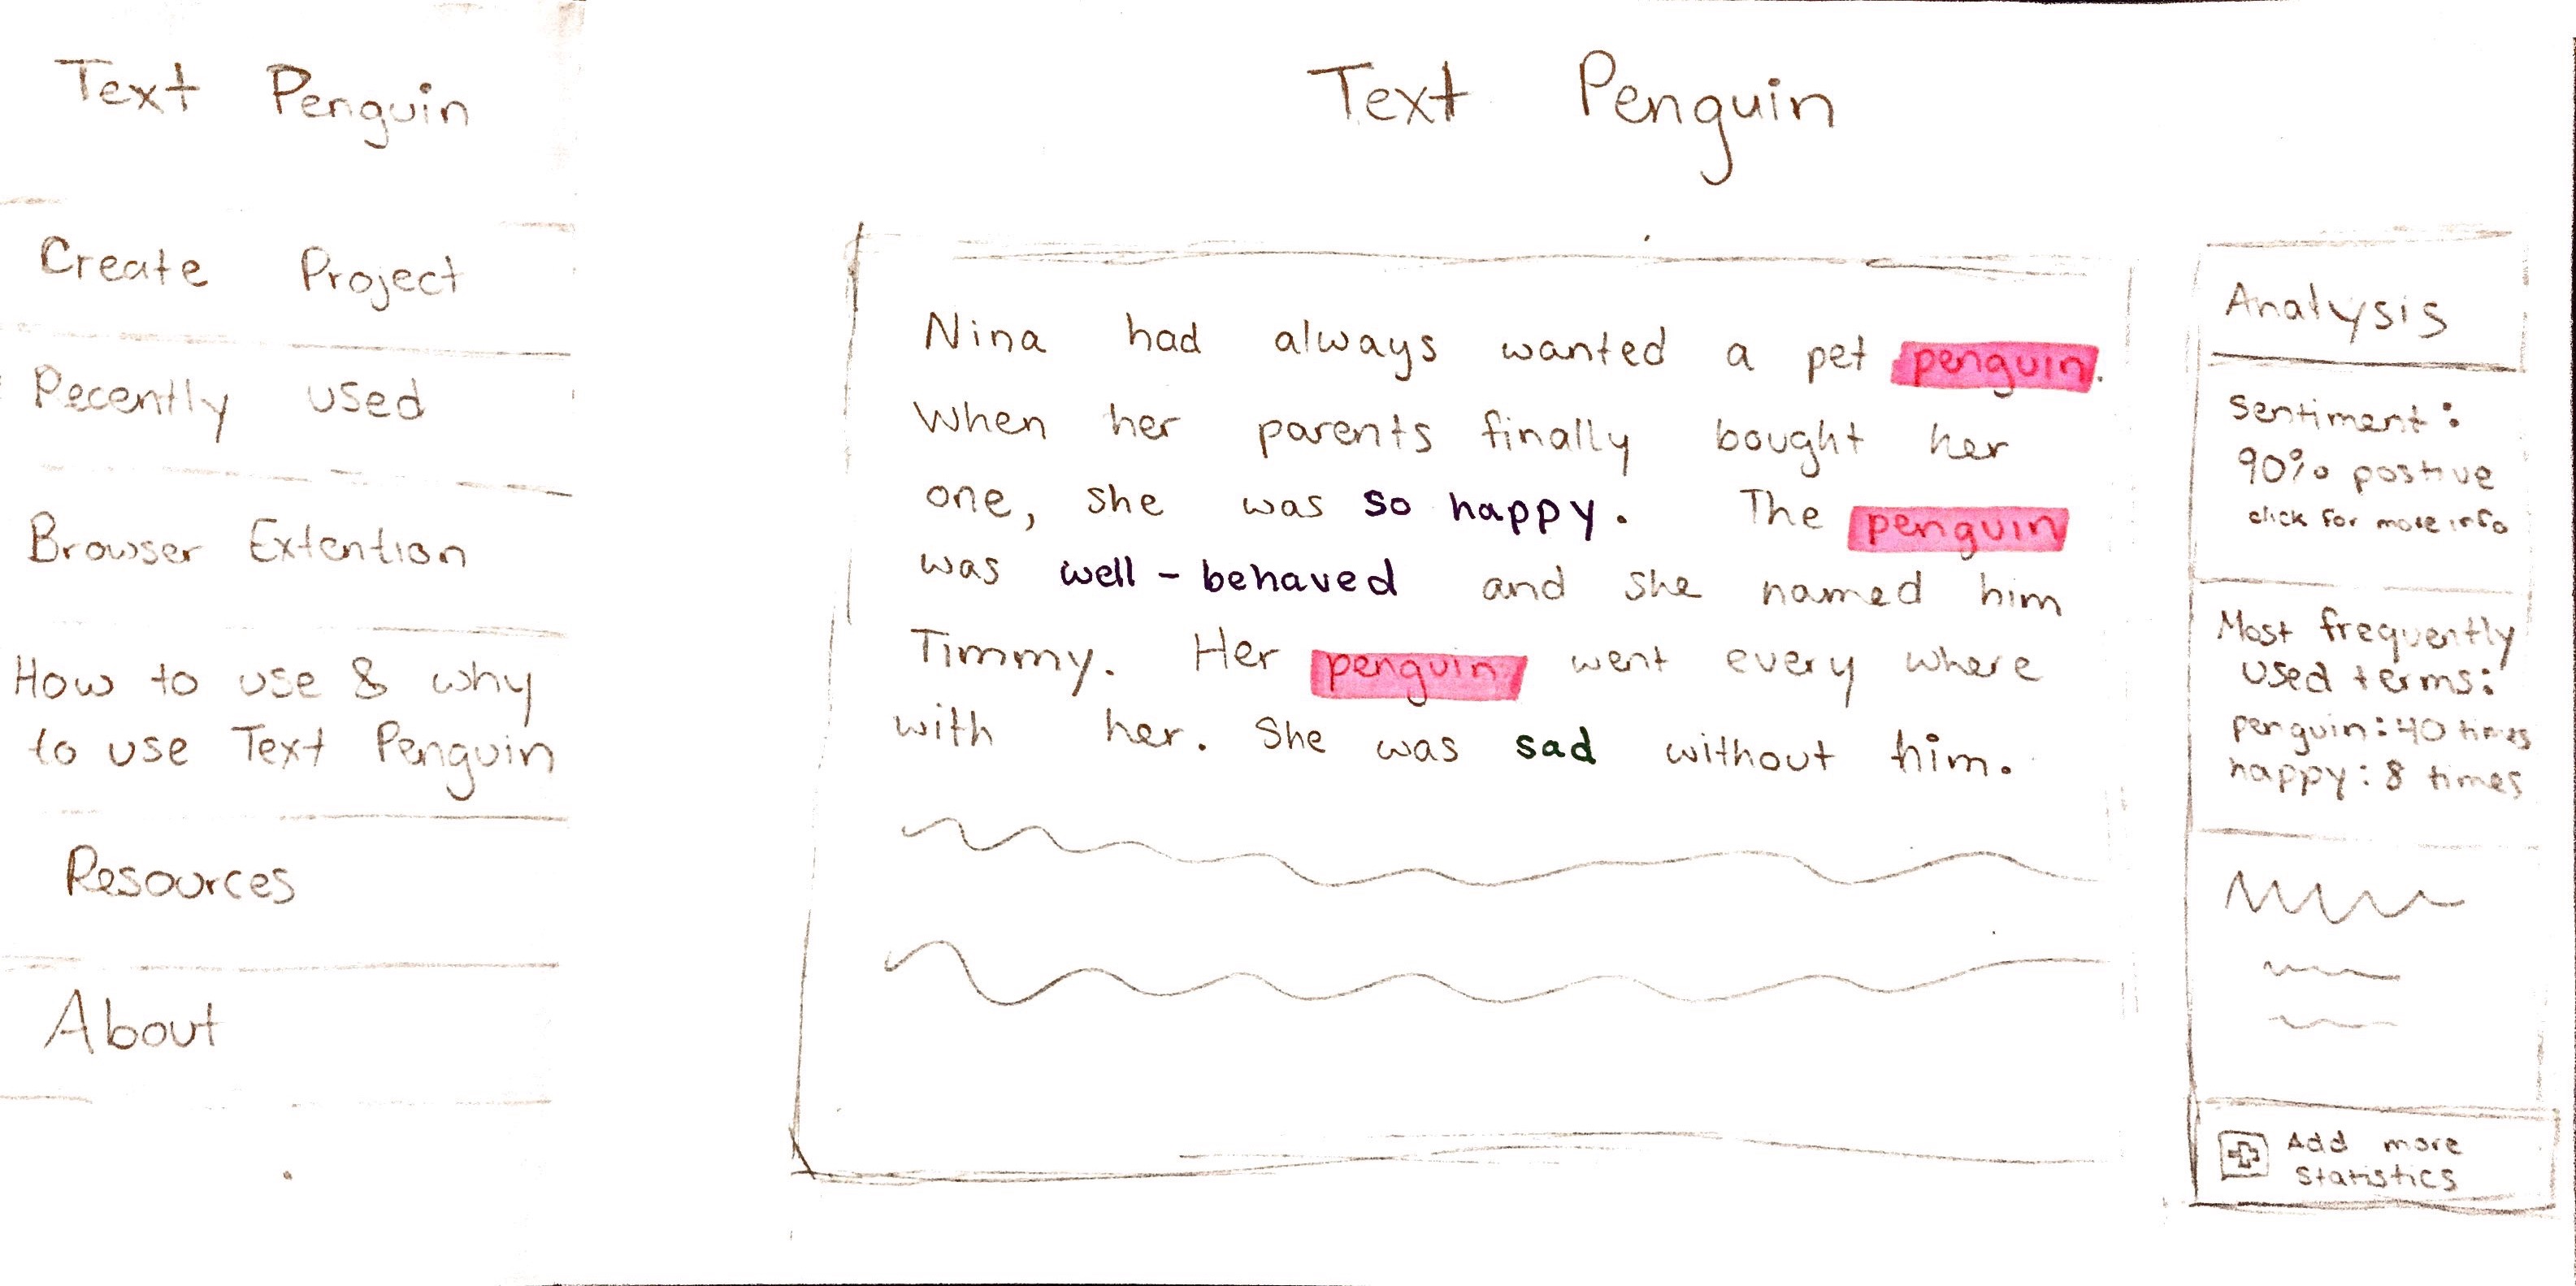 Text Penguin
Create Project
Recently used
Browser Extention
How to use & why
to use Text Penguin
Resources
About
Text Penguin
Nina had always wanted a pet penguin.
When her parents finally bought her
one, she was so happy. The penguin
was well-behaved and she named him
Timmy. Her penguin went every where
with her. She was sad without him.
Analysis
Sentiment:
90% postive
click for more info
Most frequently
used terms:
penguin: 40 times
happy: 8 times
Add more
Statistics